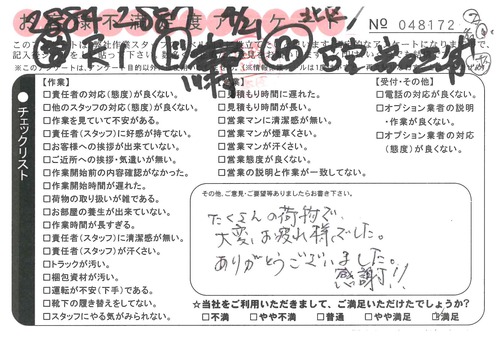 お客様不満足度アンケート
№ 048172
【作業】
□責任者の対応(態度)が良くない。
□他のスタッフの対応(態度)が良くない。
□作業を見ていて不安がある。
□責任者(スタッフ)に好感が持てない。
□お客様への挨拶が出来ていない。
□ご近所への挨拶・気遣いが無い。
□作業開始前の内容確認がなかった。
□作業開始時間が遅れた。
□荷物の取り扱いが雑である。
□お部屋の養生が出来ていない。
□作業時間が長すぎる。
□責任者(スタッフ)に清潔感が無い。
□責任者(スタッフ)が汗くさい。
□トラックが汚い。
□梱包資材が汚い。
□運転が不安(下手)である。
□靴下の履き替えをしてない。
□スタッフにやる気がみられない。
□見積もり時間に遅れた。
□見積もり時間が長い。
□営業マンに清潔感が無い。
□営業マンが煙草くさい。
□営業マンが汗くさい。
□営業態度が良くない。
□営業の説明と作業が一致してない。
【受付・その他】
□電話の対応が良くない。
□オプション業者の説明
・作業が良くない。
□オプション業者の対応
(態度)が良くない。
チェックリスト
その他、ご意見・ご要望等ありましたらお書き下さい。
たくさんの荷物で、
大変お疲れ様でした。
ありがとうございました。
感謝!!
☆当社をご利用いただきまして、ご満足いただけたでしょうか?
□不満 □やや不満 □普通 □やや満足 ☑満足